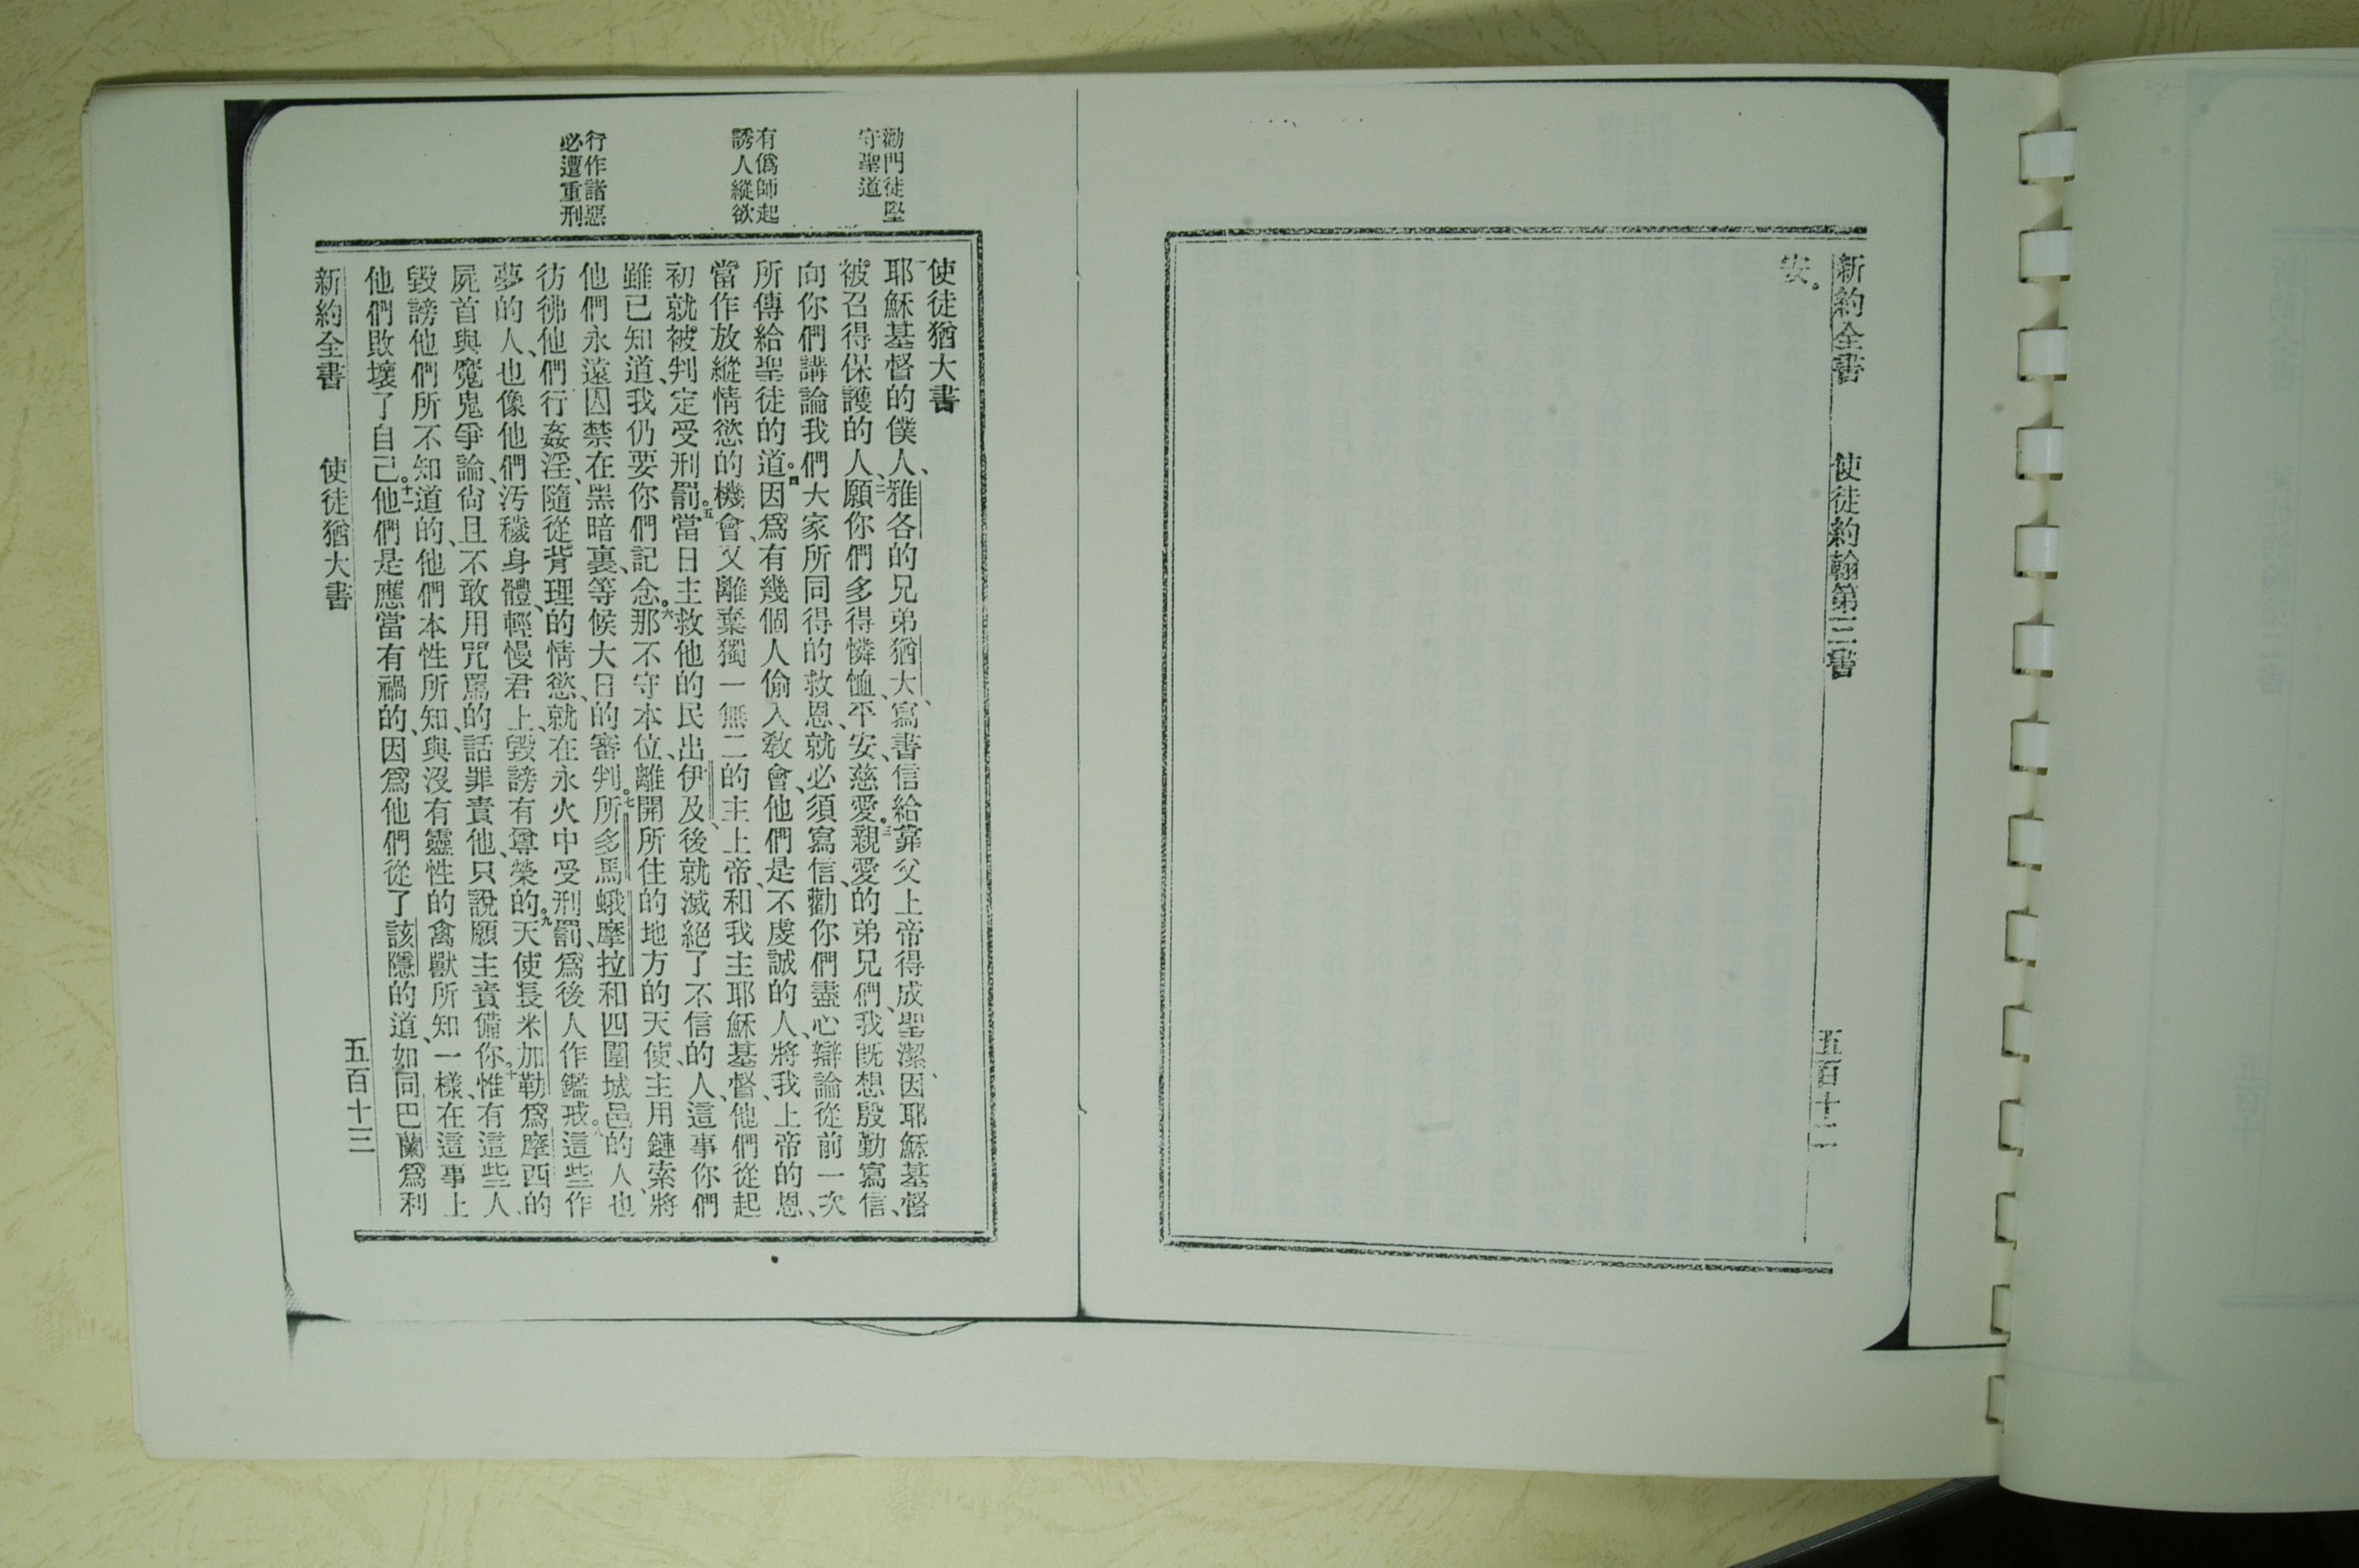 新約全書 使徒約翰第三書 五百十二
安。
勸門徒堅
守聖道
有僞師起
誘人縱欲
行作諸惡
必遭重刑
使徒猶大書
一耶穌基督的僕人、雅各的兄弟猶大、寫書信給靠父上帝得成聖潔、因耶穌基督
被召得保護的人、二願你們多得憐恤、平安、慈愛。三親愛的弟兄們、我旣想殷勤寫信、
向你們講論我們大家所同得的救恩、就必須寫信、勸你們盡心辯論從前一次
所傳給聖徒的道。四因爲有幾個人偷入敎會、他們是不虔誠的人、將我上帝的恩、
當作放縱情慾的機會、又離棄獨一無二的主上帝、和我主耶穌基督、他們從起
初就被判定受刑罰。五當日主救他的民出伊及、後就滅絕了不信的人、這事你們
雖已知道、我仍要你們記念。六那不守本位、離開所住的地方的天使、主用鏈索、將
他們永遠囚禁在黑暗裏、等候大日的審判。七所多馬蛾摩拉和四圍城邑的人、也
彷彿他們行姦淫、隨從背理的情慾、就在永火中受刑罰、爲後人作鑑戒。八這些作
夢的人、也像他們汚穢身體、輕慢君上、毀謗有尊榮的。九天使長米加勒爲摩西的
屍首與魔鬼爭論、尙且不敢用咒罵的話罪責他、只說願主責備你。十惟有這些人、
毀謗他們所不知道的、他們本性所知、與沒有靈性的禽獸所知一樣、在這事上
他們敗壞了自己。十一他們是應當有禍的、因爲他們從了該隱的道、如同巴蘭爲利
新約全書 使徒猶大書 五百十三